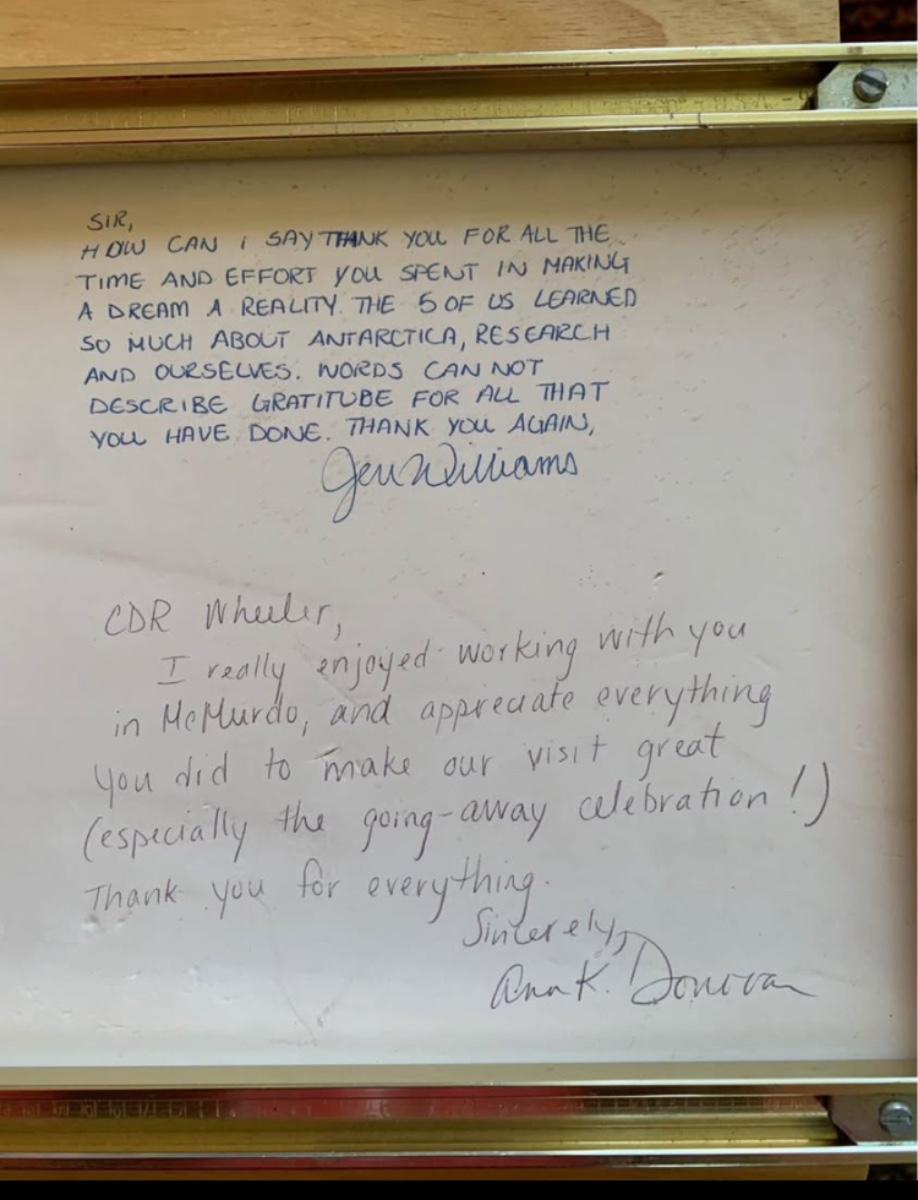 SIR,
HOW CAN I SAY THANK YOU FOR ALL THE
TIME AND EFFORT YOU SPENT IN MAKING
A DREAM A REALITY. THE 5 OF US LEARNED
SO MUCH ABOUT ANTARCTICA, RESEARCH
AND OURSELVES. WORDS CAN NOT
DESCRIBE GRATITUBE FOR ALL THAT
YOU HAVE DONE. THANK YOU AGAIN,
Jen Williams
CDR Wheeler,
I really enjoyed working with you
in McMurdo, and appreciate everything
you did to make our visit great
(especially the going-away celebration!)
Thank you for everything.
Sincerely,
Ann K. Donovan